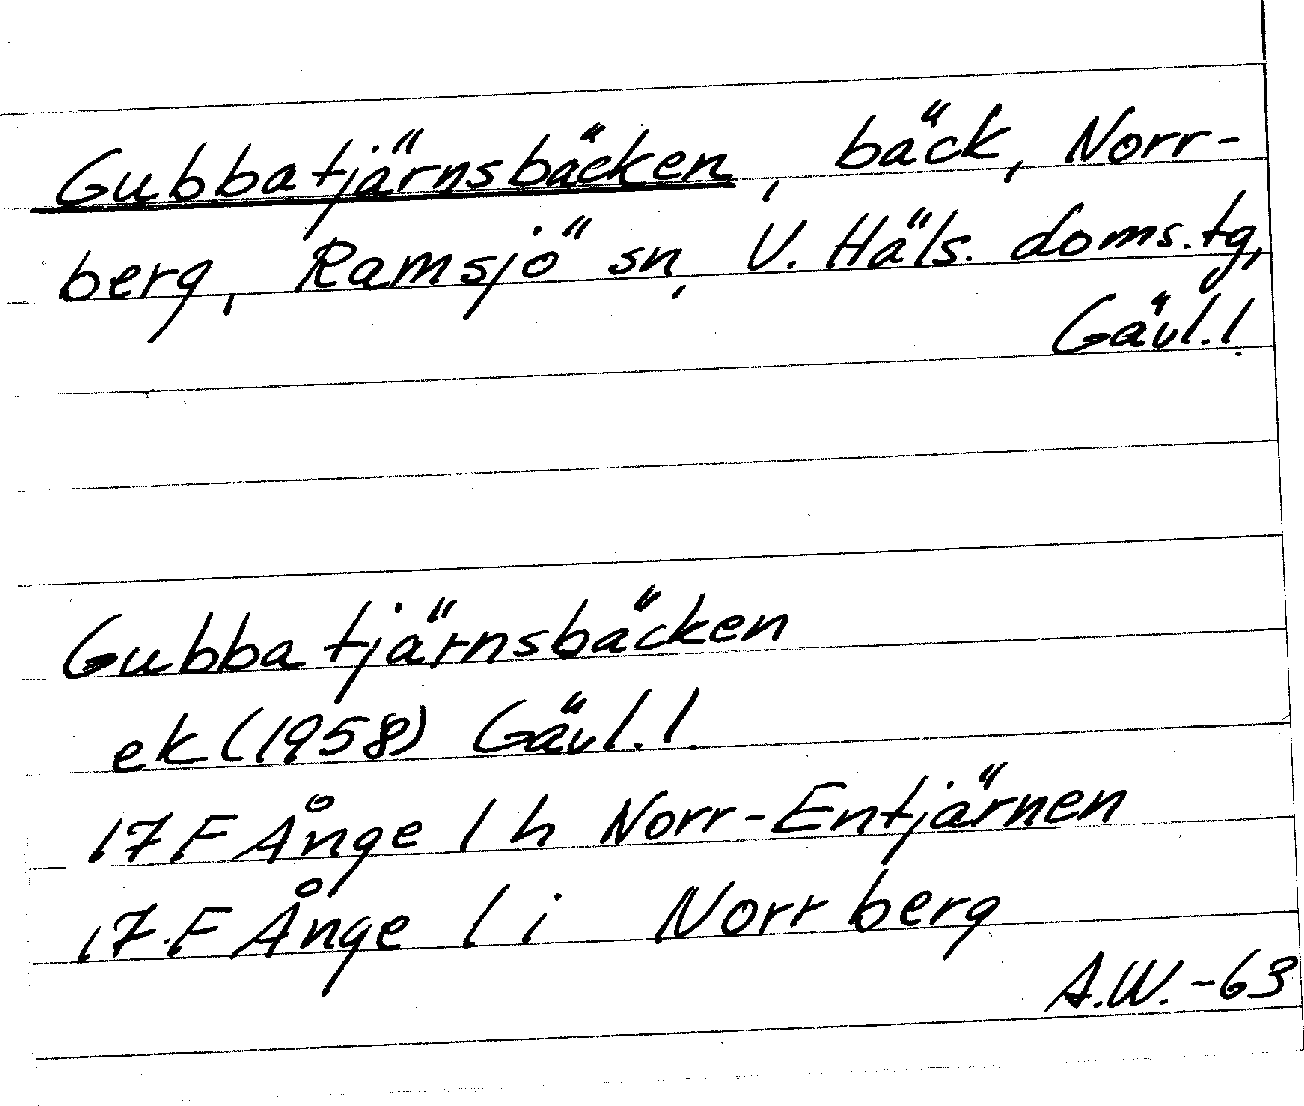 Gubbatjärnsbäcken, bäck, Norr-
berg, Ramsjö sn, V. Häls. doms.tg,
Gävl.l.
Gubbatjärnsbäcken
ek (1958) Gävl.l.
17 F Ånge 1 h Norr-Entjärnen
17 F Ånge 1 i Norrberg
A.W. -63